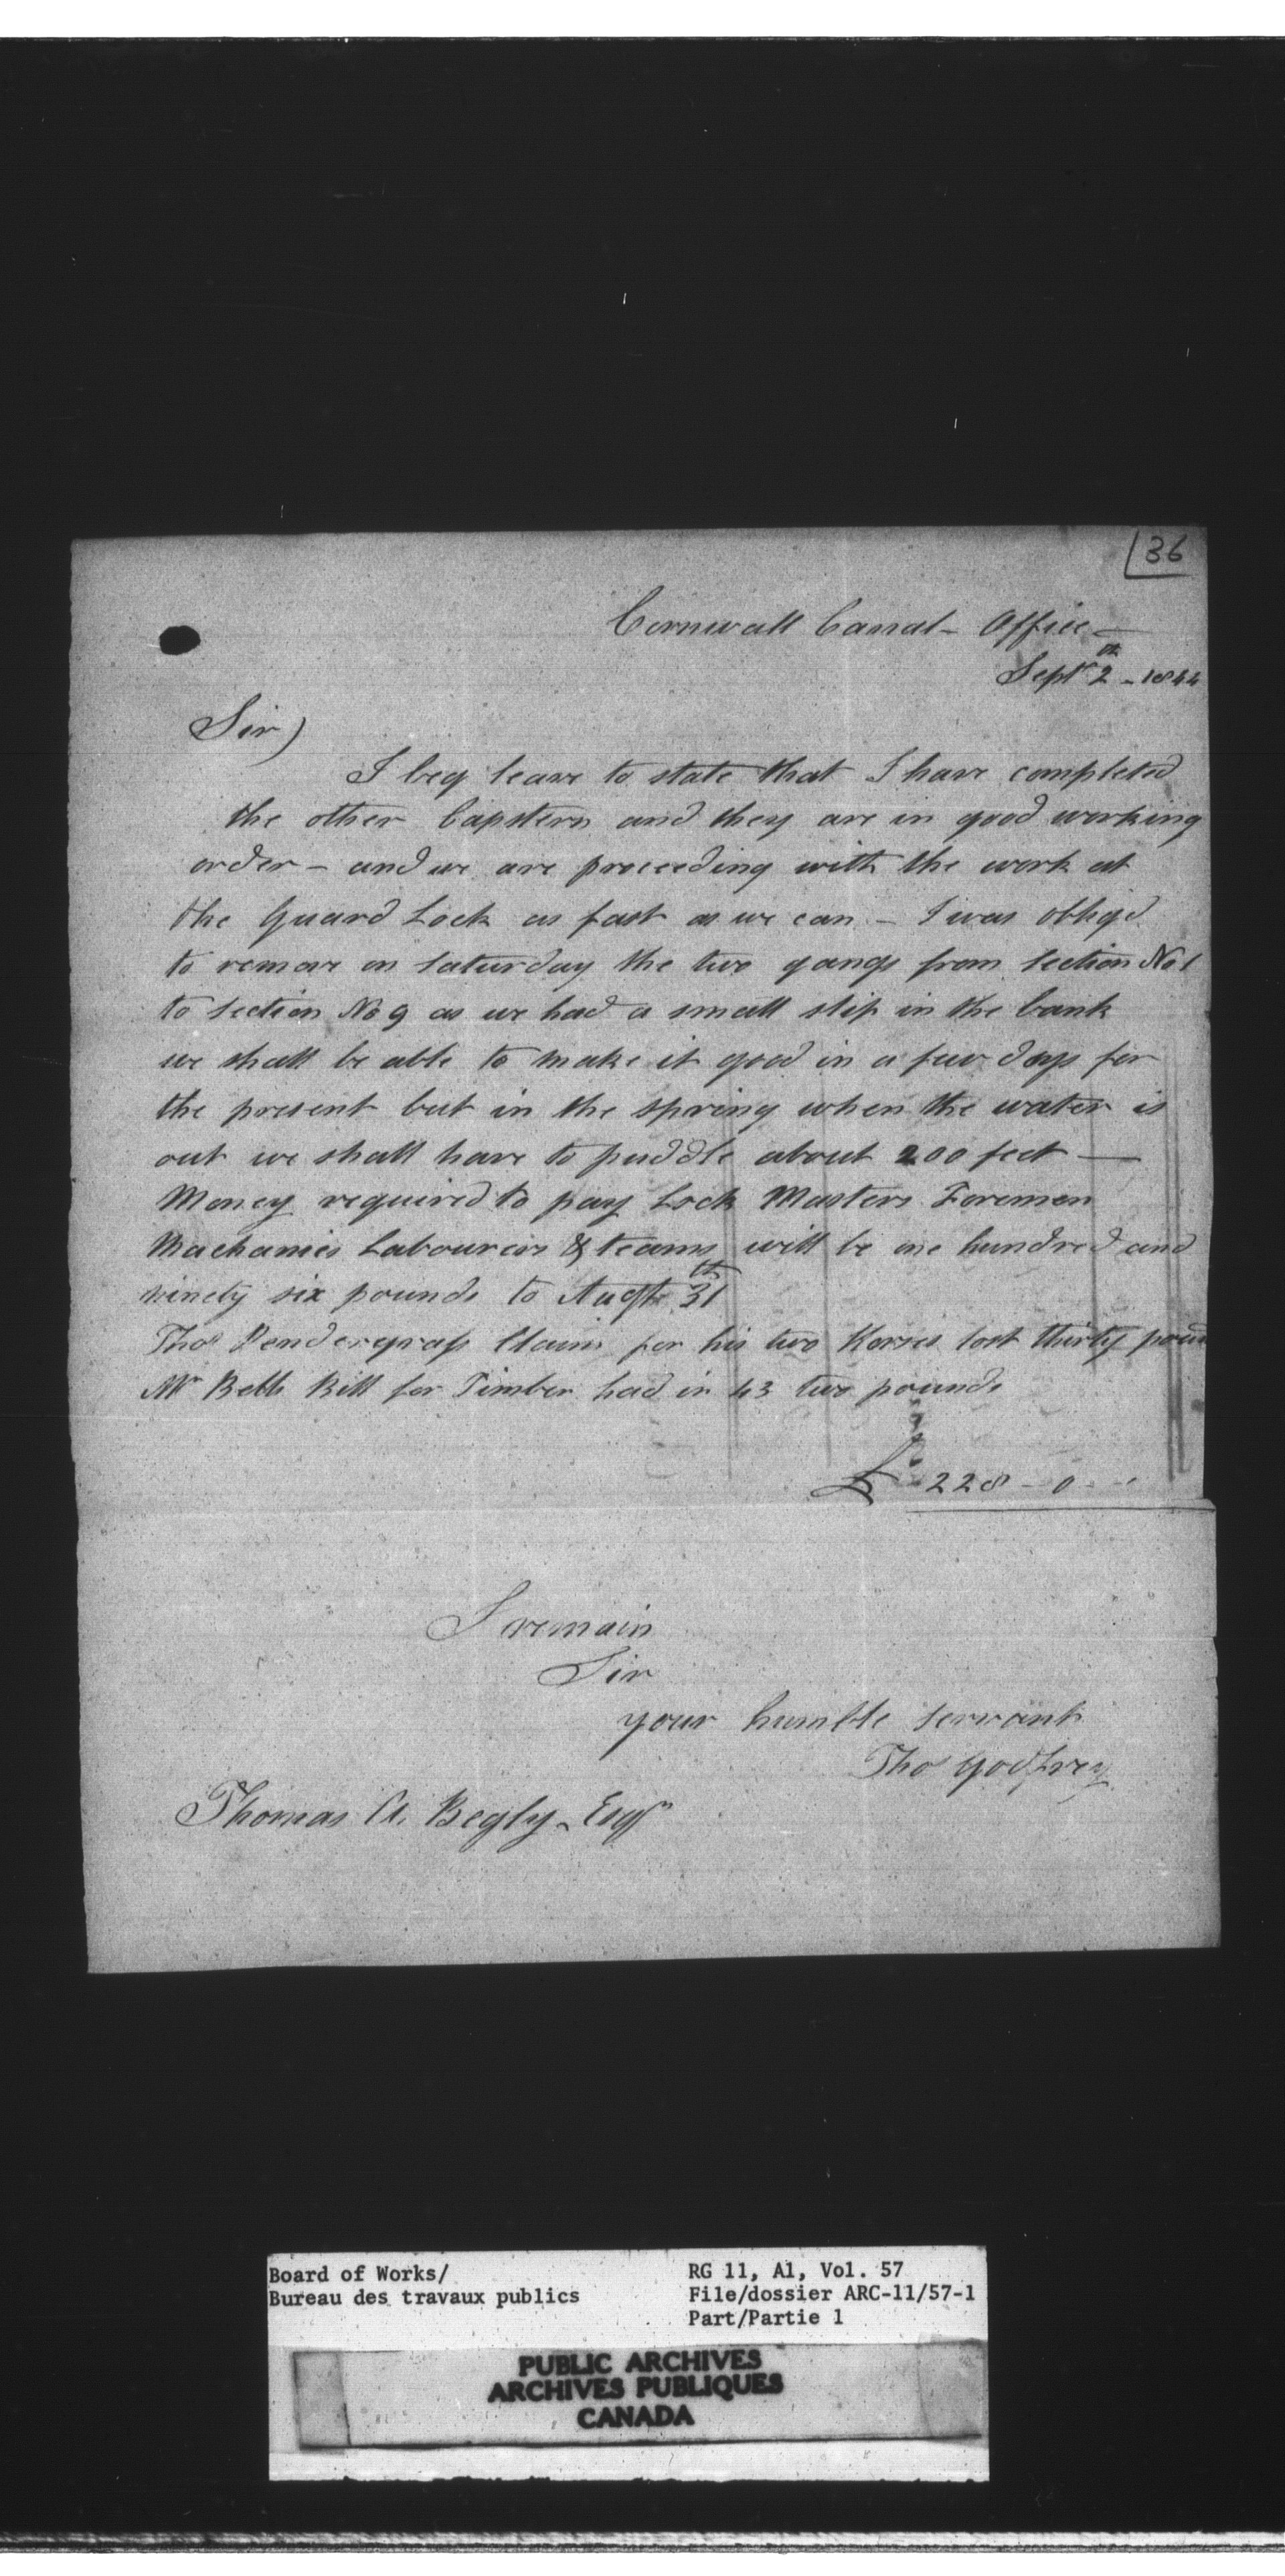 36
Cornwall Canal - Office -
Septr 2th - 1844
Sir)
I beg leave to state that I have completed
the other Capstern and they are in good working
order - and we are proceeding with the work at
the Guard Lock as fast as we can - I was obligd
to remove on Saturday the two gangs from section No 1
to section No 9 as we had a small slip in the bank
we shall be able to make it good in a few days for
the present but in the spring when the water is
out we shall have to puddle about 200 feet —
Money required to pay Lock Masters Foremen
Machanics Labourers & teams will be one hundred and
ninety six pounds to Augt 31th
Thos Pendergrass Claim for his two Horses lost thirty pound
Mr Bells Bill for Timber had in 43 two pounds
£ 228 - 0 - -
I remain
Sir
your humble servant
Thos Godfrey
Thomas A. Begly - Esqr
Board of Works/
Bureau des travaux publics
RG 11, A1, Vol. 57
File/dossier ARC-11/57-1
Part/Partie 1
PUBLIC ARCHIVES
ARCHIVES PUBLIQUES
CANADA